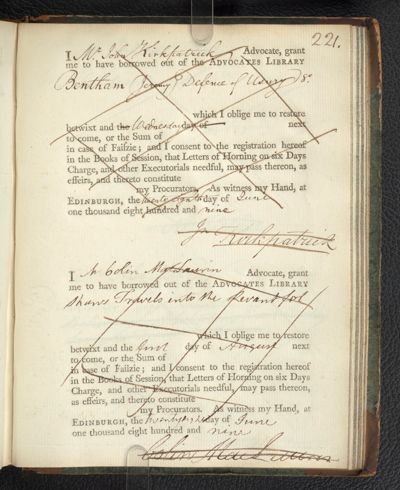 221.
I Mr. John Kirkpatrick Advocate, grant
me to have borrowed out of the ADVOCATES LIBRARY
Bentham (Jeremy) Defence of Usury 8o
which I oblige me to restore
betwixt and the Wednesday day of next
to come, or the Sum of
in case of Failzie; and I consent to the registration hereof
in the Books of Session, that Letters of Horning on six Days
Charge, and other Executorials needful, may pass thereon, as
effeirs, and thereto constitute
my Procurators. As witness my Hand, at
EDINBURGH, the twenty day of June
one thousand eight hundred and nine
Jn Kirkpatrick
I Mr Colin McLaurin Advocate, grant
me to have borrowed out of the ADVOCATES LIBRARY
Shaws Travels into the Levant fol
which I oblige me to restore
betwixt and the first day of August next
to come, or the Sum of
in case of Failzie; and I consent to the registration hereof
in the Books of Session, that Letters of Horning on six Days
Charge, and other Executorials needful, may pass thereon,
as effeirs, and thereto constitute
my Procurators. As witness my Hand, at
EDINBURGH, the day of June
one thousand eight hundred and nine
Colin MacLaurin